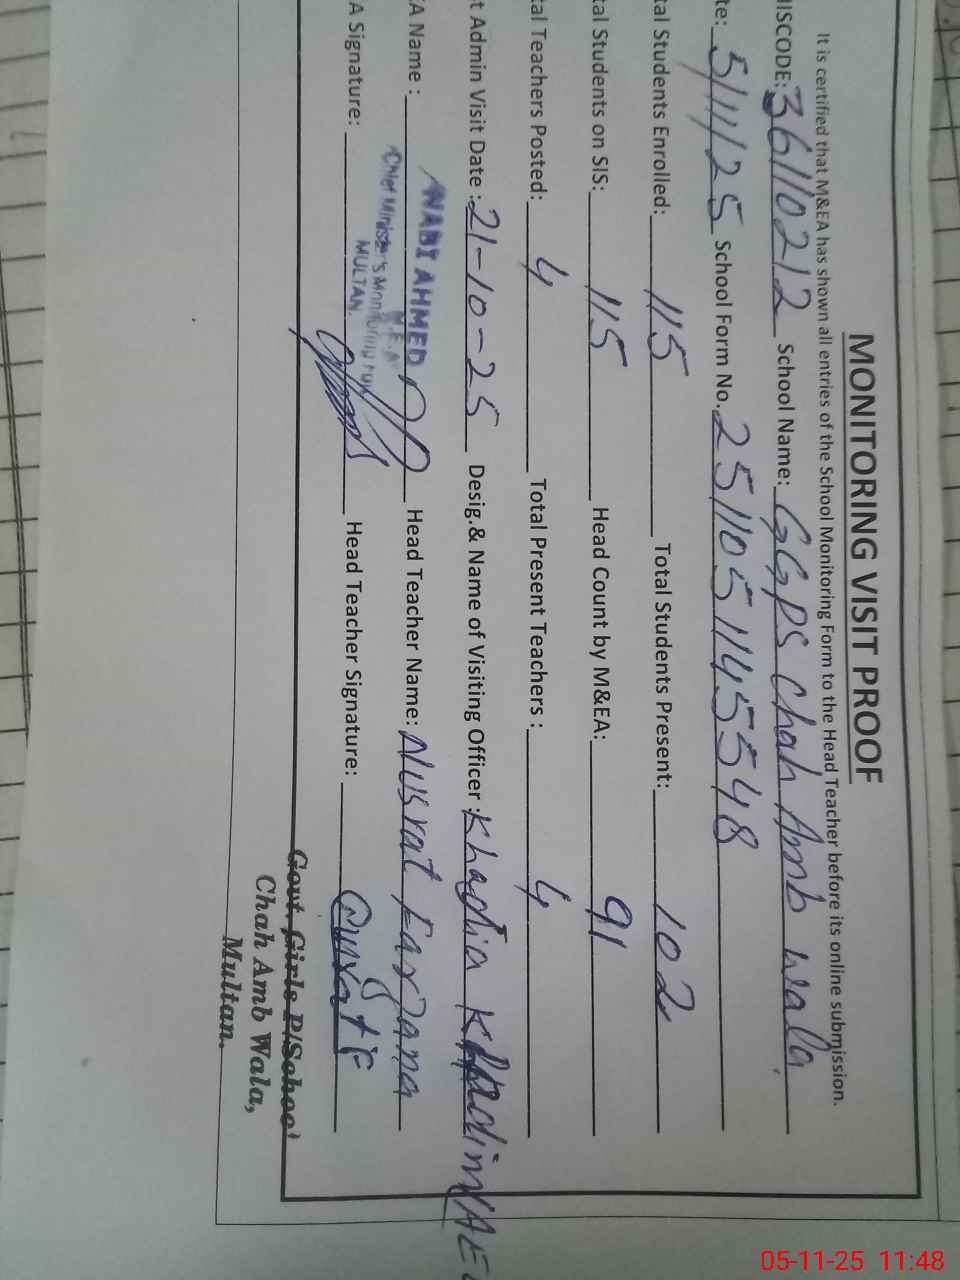 MONITORING VISIT PROOF
It is certified that M&EA has shown all entries of the School Monitoring Form to the Head Teacher before its online submission.
ISCODE: 36110212 School Name: GGPS Chah Amb wala
te: 5/11/25 School Form No. 2511051145548
tal Students Enrolled: 115 Total Students Present: 102
tal Students on SIS: 115 Head Count by M&EA: 91
tal Teachers Posted: 4 Total Present Teachers : 4
t Admin Visit Date : 21-10-25 Desig.& Name of Visiting Officer : Khadia /AE
A Name : NABI AHMED Head Teacher Name: Nusrat Farzana
M.E.A
Chief Minister's Monitoring
MULTAN.
A Signature: Head Teacher Signature:
Govt. Girls P/School
Chah Amb Wala,
Multan.
05-11-25 11:48